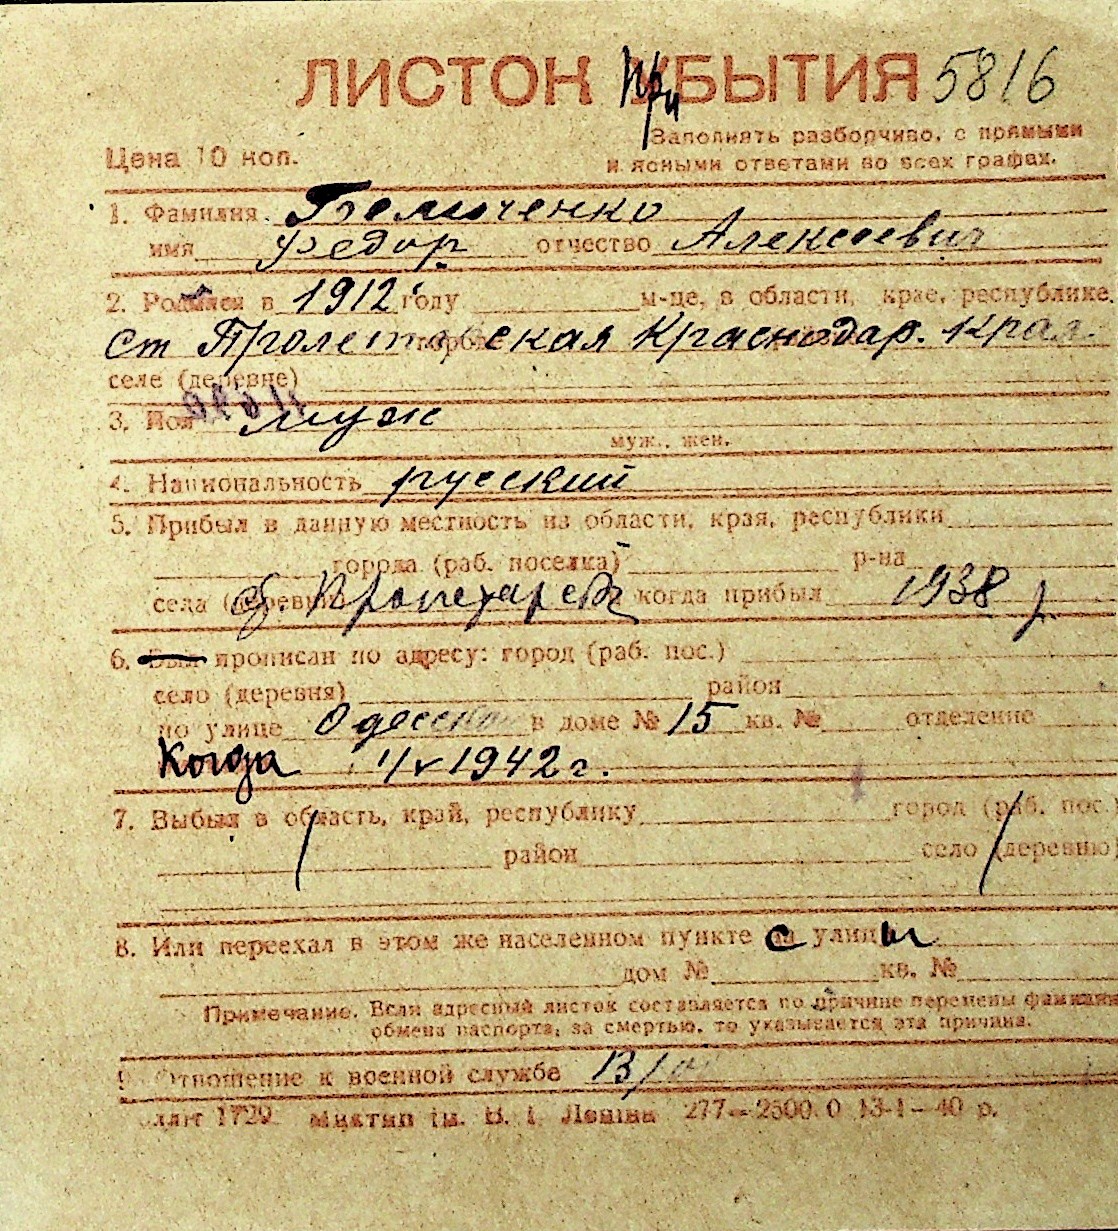 ЛИСТОК При УБЫТИЯ 5816
Заполнять разборчиво, с прямыми
Цена 10 коп.
и ясными ответами во всех графах.
1. Фамилия
имя Федор отчество Алексеевич
2. Родился в 1912 году м-це, в области, крае, республике
ст Пролетарская Краснодар. края
селе (деревне)
3. Пол муж
муж., жен.
4. Национальность русский
5. Прибыл в данную местность из области, края, республики
города (раб. поселка) р-на
села (деревни) когда прибыл 1938 г.
6. Был прописан по адресу: город (раб. пос.)
село (деревня) район
по улице в доме № 15 кв. № отделение
Когда 1942 г.
7. Выбыл в область, край, республику город (раб. пос.
район село (деревню)
8. Или переехал в этом же населенном пункте с улицы
дом № кв. №
Примечание. Если адресный листок составляется по причине перемены фамилии
обмена паспорта, за смертью, то указывается эта причина.
9. Отношение к военной службе
1729. им. В. І. Леніна 277—2500.0 13-1—40 р.